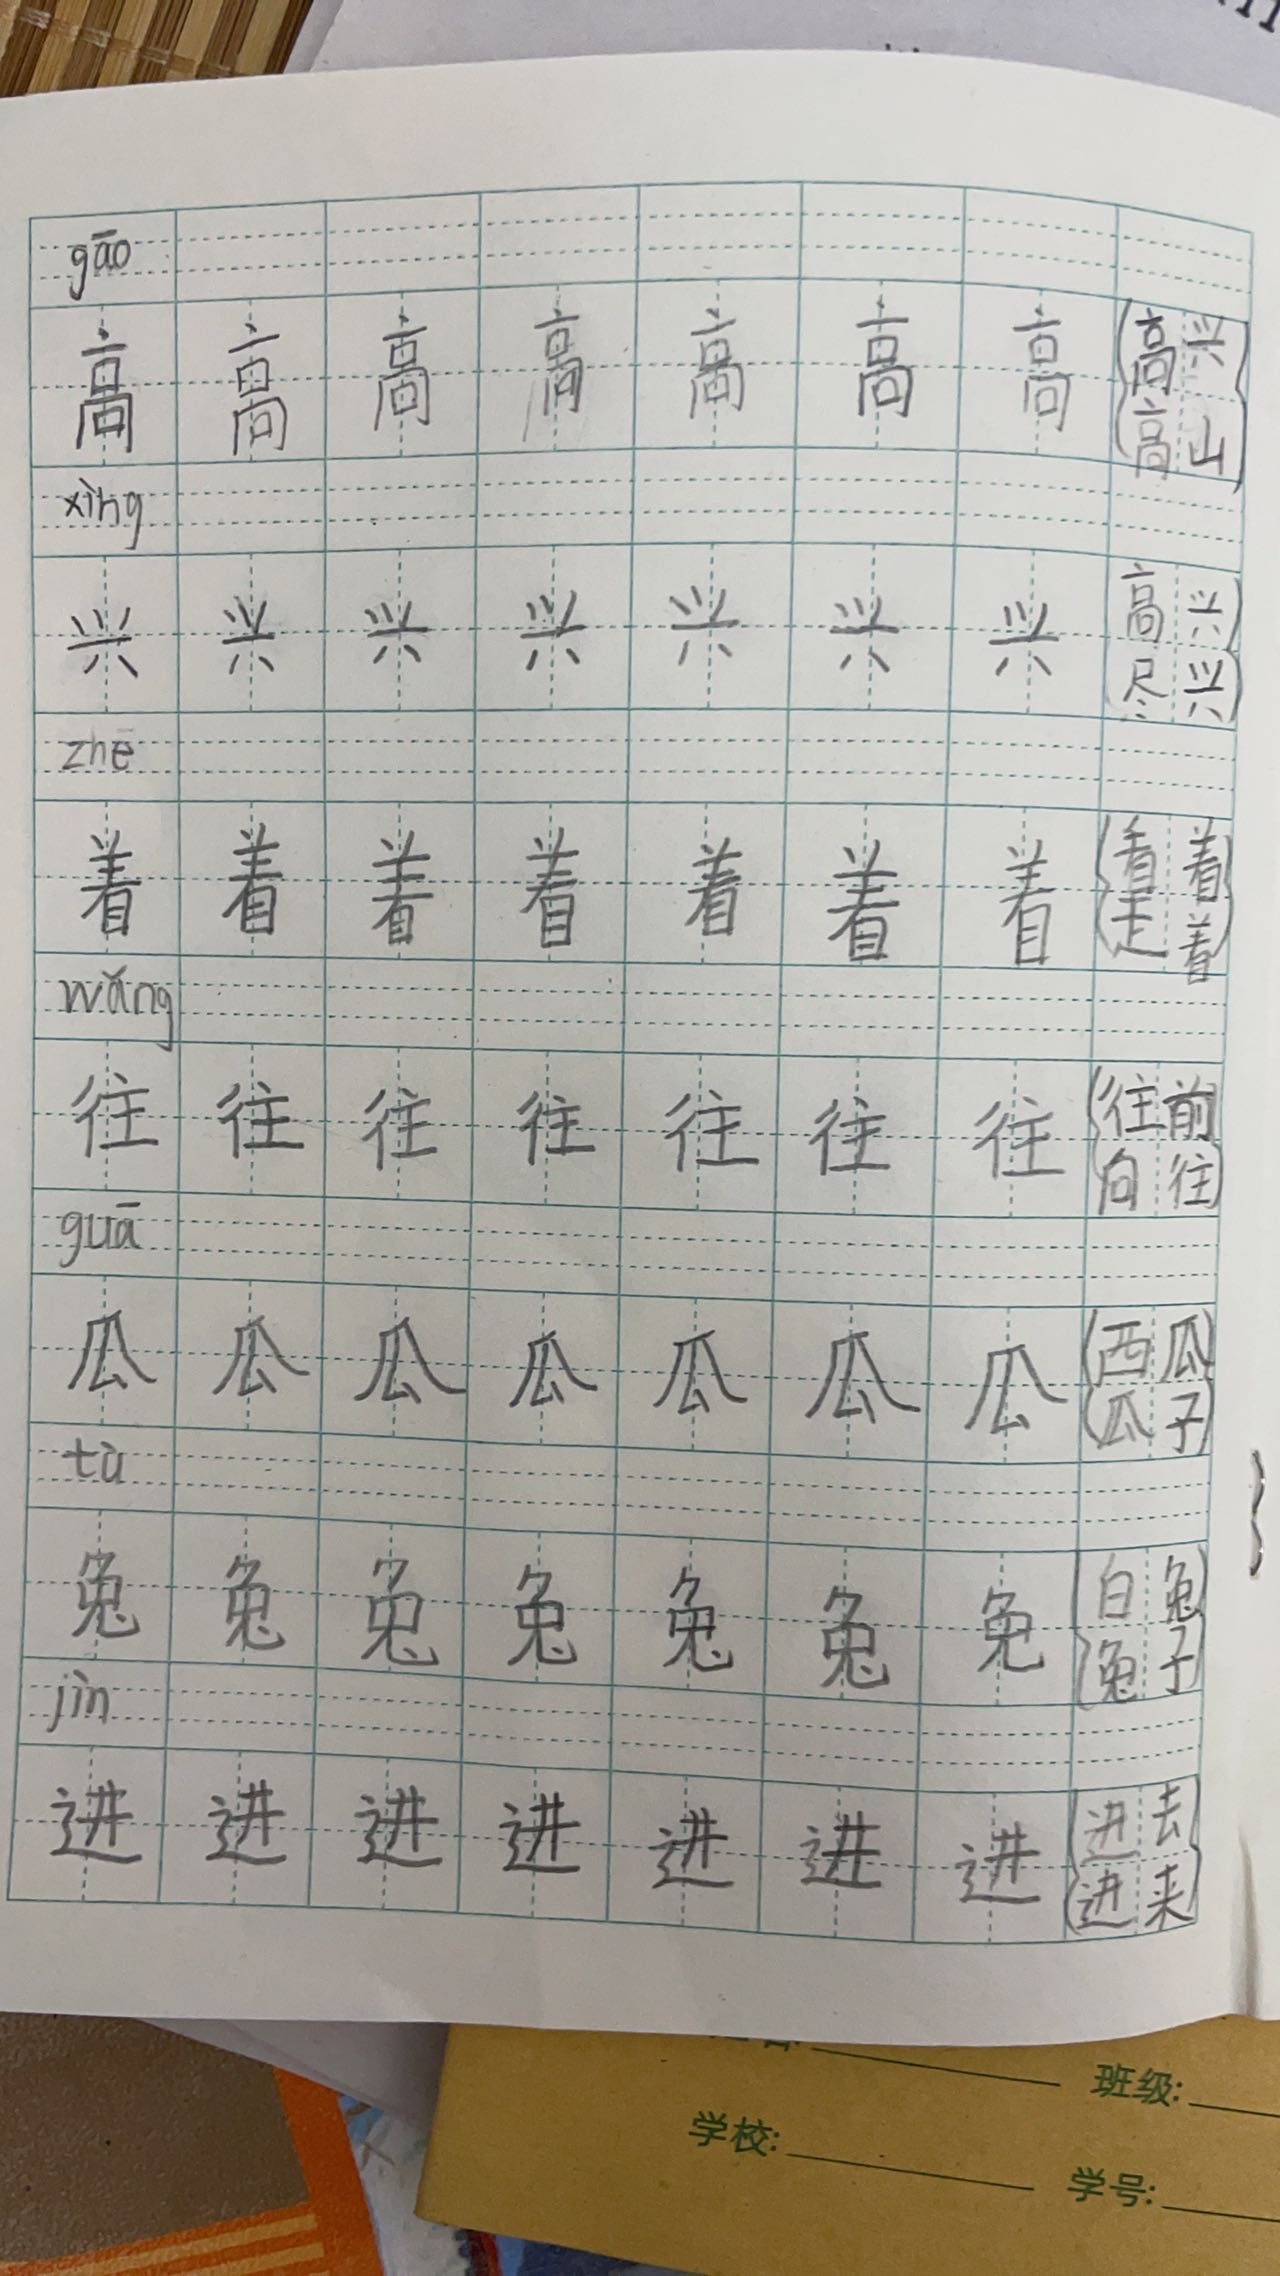 gāo
高 高 高 高 高 高 高 高兴
高山
xìng
兴 兴 兴 兴 兴 兴 兴 高兴
尽兴
zhē
着 着 着 着 着 着 着 看着
走着
wǎng
往 往 往 往 往 往 往 往前
向往
guā
瓜 瓜 瓜 瓜 瓜 瓜 瓜 西瓜
瓜子
tù
兔 兔 兔 兔 兔 兔 兔 白兔
兔子
jìn
进 进 进 进 进 进 进 进去
进来
班级:
学校:
学号: